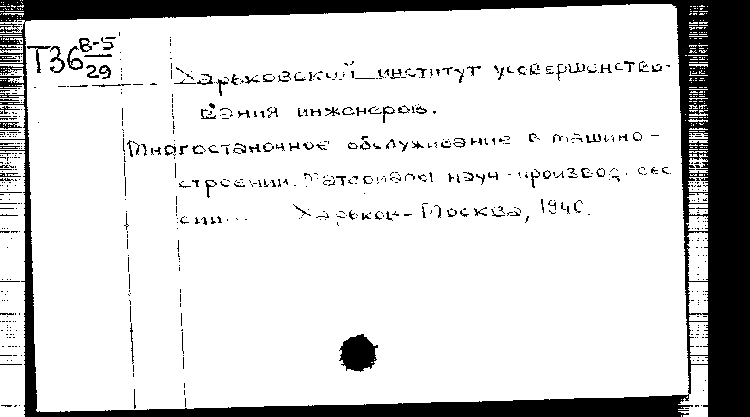 Т36 В-5
29
Харьковский институт усовершенство-
вания инженеров.
Многостаночное обслуживание в машино-
строении. Материалы науч.-производ. сес
сии... Харьков-Москва, 1940.